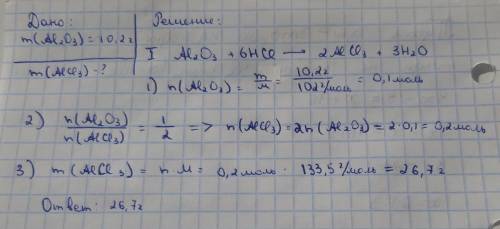 Дано:
Решение:
m(Al₂O₃) = 10,2г
m(AlCl₃) - ?
I Al₂O₃ + 6HCl → 2AlCl₃ + 3H₂O
1) n(Al₂O₃) = m/M = 10,2г/102г/моль = 0,1 моль
2) n(Al₂O₃)/n(AlCl₃) = 1/2 => n(AlCl₃) = 2n(Al₂O₃) = 2·0,1 = 0,2 моль
3) m(AlCl₃) = n·M = 0,2 моль · 133,5 г/моль = 26,7г
Ответ: 26,7г